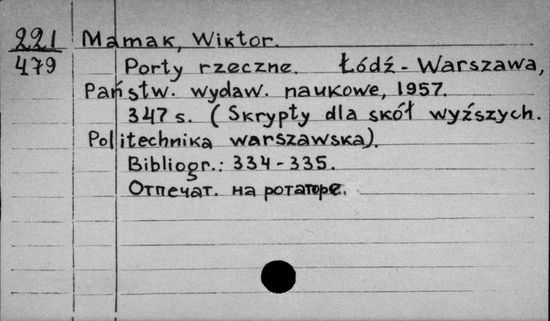 221 Mamak, Wiktor.
479 Porty rzeczne. Łódź - Warszawa,
Państw. wydaw. naukowe, 1957.
347 s. (Skrypty dla skół wyższych.
Politechnika warszawska).
Bibliogr.: 334-335.
Отпечат. на ротаторе.